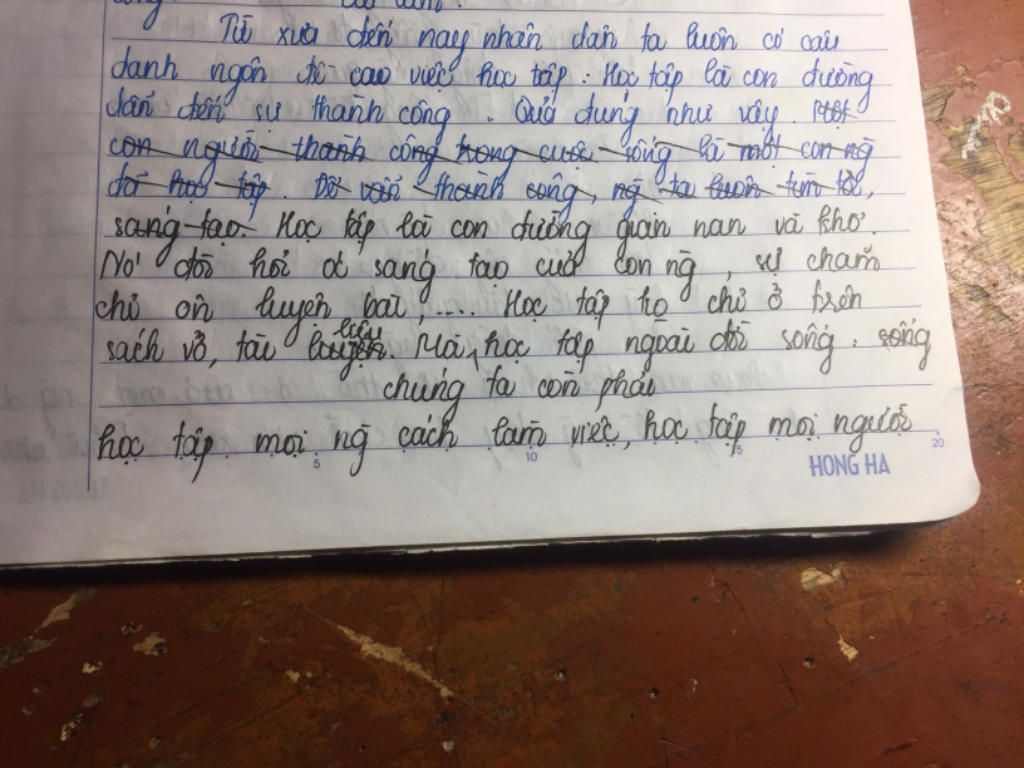 Từ xưa đến nay nhân dân ta luôn có câu
danh ngôn đề cao việc học tập. Học tập là con đường
dẫn đến sự thành công. Quả đúng như vậy. Một
con người thành công trong cuộc sống là một con ng
đã học tập. Để thành công, ng ta luôn tìm tòi,
sáng tạo. Học tập là con đường gian nan và khó.
Nó đòi hỏi sáng tạo của con ng, sự chăm
chỉ ôn luyện bài,.... Học tập chỉ ở trên
liệu
sách vở, tài. Mà học tập ngoài đời sống. sống
chúng ta còn phải
học tập mọi ng cách làm việc, học tập mọi người
5 10 15 20
HONG HA